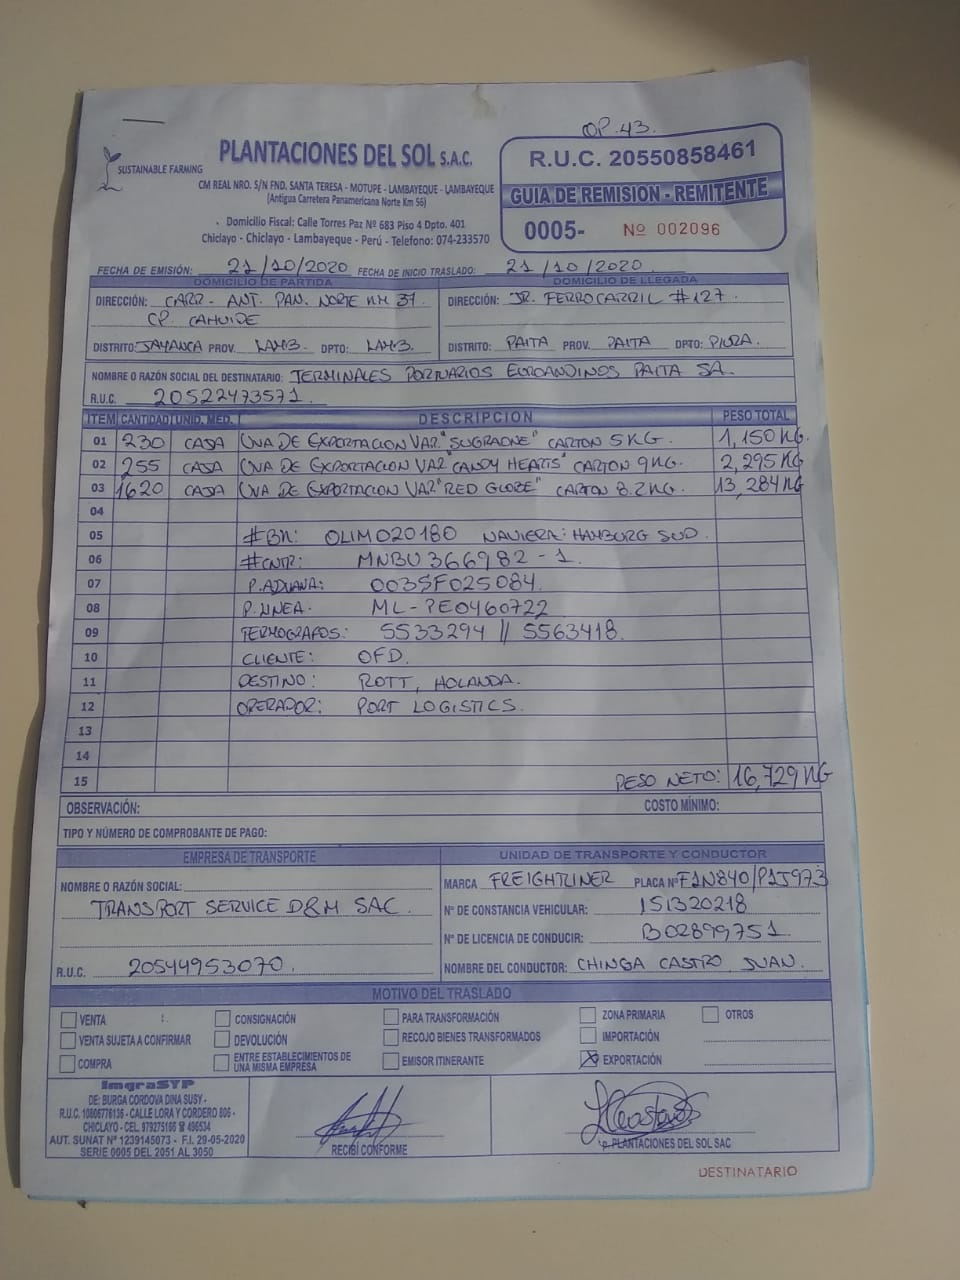 OP. 43.
SUSTAINABLE FARMING
PLANTACIONES DEL SOL S.A.C.
CM REAL NRO. S/N FND. SANTA TERESA - MOTUPE - LAMBAYEQUE - LAMBAYEQUE
(Antigua Carretera Panamericana Norte Km 56)
Domicilio Fiscal: Calle Torres Paz Nº 683 Piso 4 Dpto. 401
Chiclayo - Chiclayo - Lambayeque - Perú - Telefono: 074-233570
R.U.C. 20550858461
GUIA DE REMISION - REMITENTE
0005- Nº 002096
FECHA DE EMISIÓN: 21/10/2020 FECHA DE INICIO TRASLADO: 21/10/2020
DOMICILIO DE PARTIDA
DIRECCIÓN: CARR - ANT. PAN. NORTE KM 37.
CP. CAHUIDE
DISTRITO: JAYANCA PROV. LAMB. DPTO: LAMB.
DOMICILIO DE LLEGADA
DIRECCIÓN: JR. FERROCARRIL #127.
DISTRITO: PAITA PROV. PAITA DPTO: PIURA.
NOMBRE O RAZÓN SOCIAL DEL DESTINATARIO: TERMINALES PORTUARIOS EUROANDINOS PAITA SA.
R.U.C. 20522473571.
ITEM CANTIDAD UNID. MED. DESCRIPCION PESO TOTAL
01 230 CAJA UVA DE EXPORTACION VAR. "SUGRAONE" CARTON 5 KG. 1,150 KG.
02 255 CAJA UVA DE EXPORTACION VAR "CANDY HEARTS" CARTON 9 KG. 2,295 KG
03 1620 CAJA UVA DE EXPORTACION VAR "RED GLOBE" CARTON 8.2 KG. 13,284 KG
04
05 #BK: OLIM020180 NAVIERA: HAMBURG SUD.
06 #CNTR: MNBU 366982 - 1.
07 P. ADUANA: 003SF025084.
08 P. LINEA. ML-PE0460722
09 TERMOGRAFOS: 5533294 // 5563418.
10 CLIENTE: OFD.
11 DESTINO: ROTT, HOLANDA.
12 OPERADOR: PORT LOGISTICS.
13
14
15 PESO NETO: 16,729 KG
OBSERVACIÓN: COSTO MÍNIMO:
TIPO Y NÚMERO DE COMPROBANTE DE PAGO:
EMPRESA DE TRANSPORTE
NOMBRE O RAZÓN SOCIAL:
TRANSPORT SERVICE D&M SAC.
R.U.C. 20544953070.
UNIDAD DE TRANSPORTE Y CONDUCTOR
MARCA FREIGHTLINER PLACA Nº F1N840/P1J973
Nº DE CONSTANCIA VEHICULAR: 151320218
Nº DE LICENCIA DE CONDUCIR: B02899751.
NOMBRE DEL CONDUCTOR: CHINGA CASTRO JUAN.
MOTIVO DEL TRASLADO
VENTA CONSIGNACIÓN PARA TRANSFORMACIÓN ZONA PRIMARIA OTROS
VENTA SUJETA A CONFIRMAR DEVOLUCIÓN RECOJO BIENES TRANSFORMADOS IMPORTACIÓN
COMPRA ENTRE ESTABLECIMIENTOS DE UNA MISMA EMPRESA EMISOR ITINERANTE EXPORTACIÓN
ImgraSYP
DE: BURGA CORDOVA DINA SUSY -
R.U.C. 10806776136 - CALLE LORA Y CORDERO 806 -
CHICLAYO - CEL. 979275166 496534
AUT. SUNAT Nº 1239145073 - F.I. 29-05-2020
SERIE 0005 DEL 2051 AL 3050
RECIBÍ CONFORME
p. PLANTACIONES DEL SOL SAC
DESTINATARIO